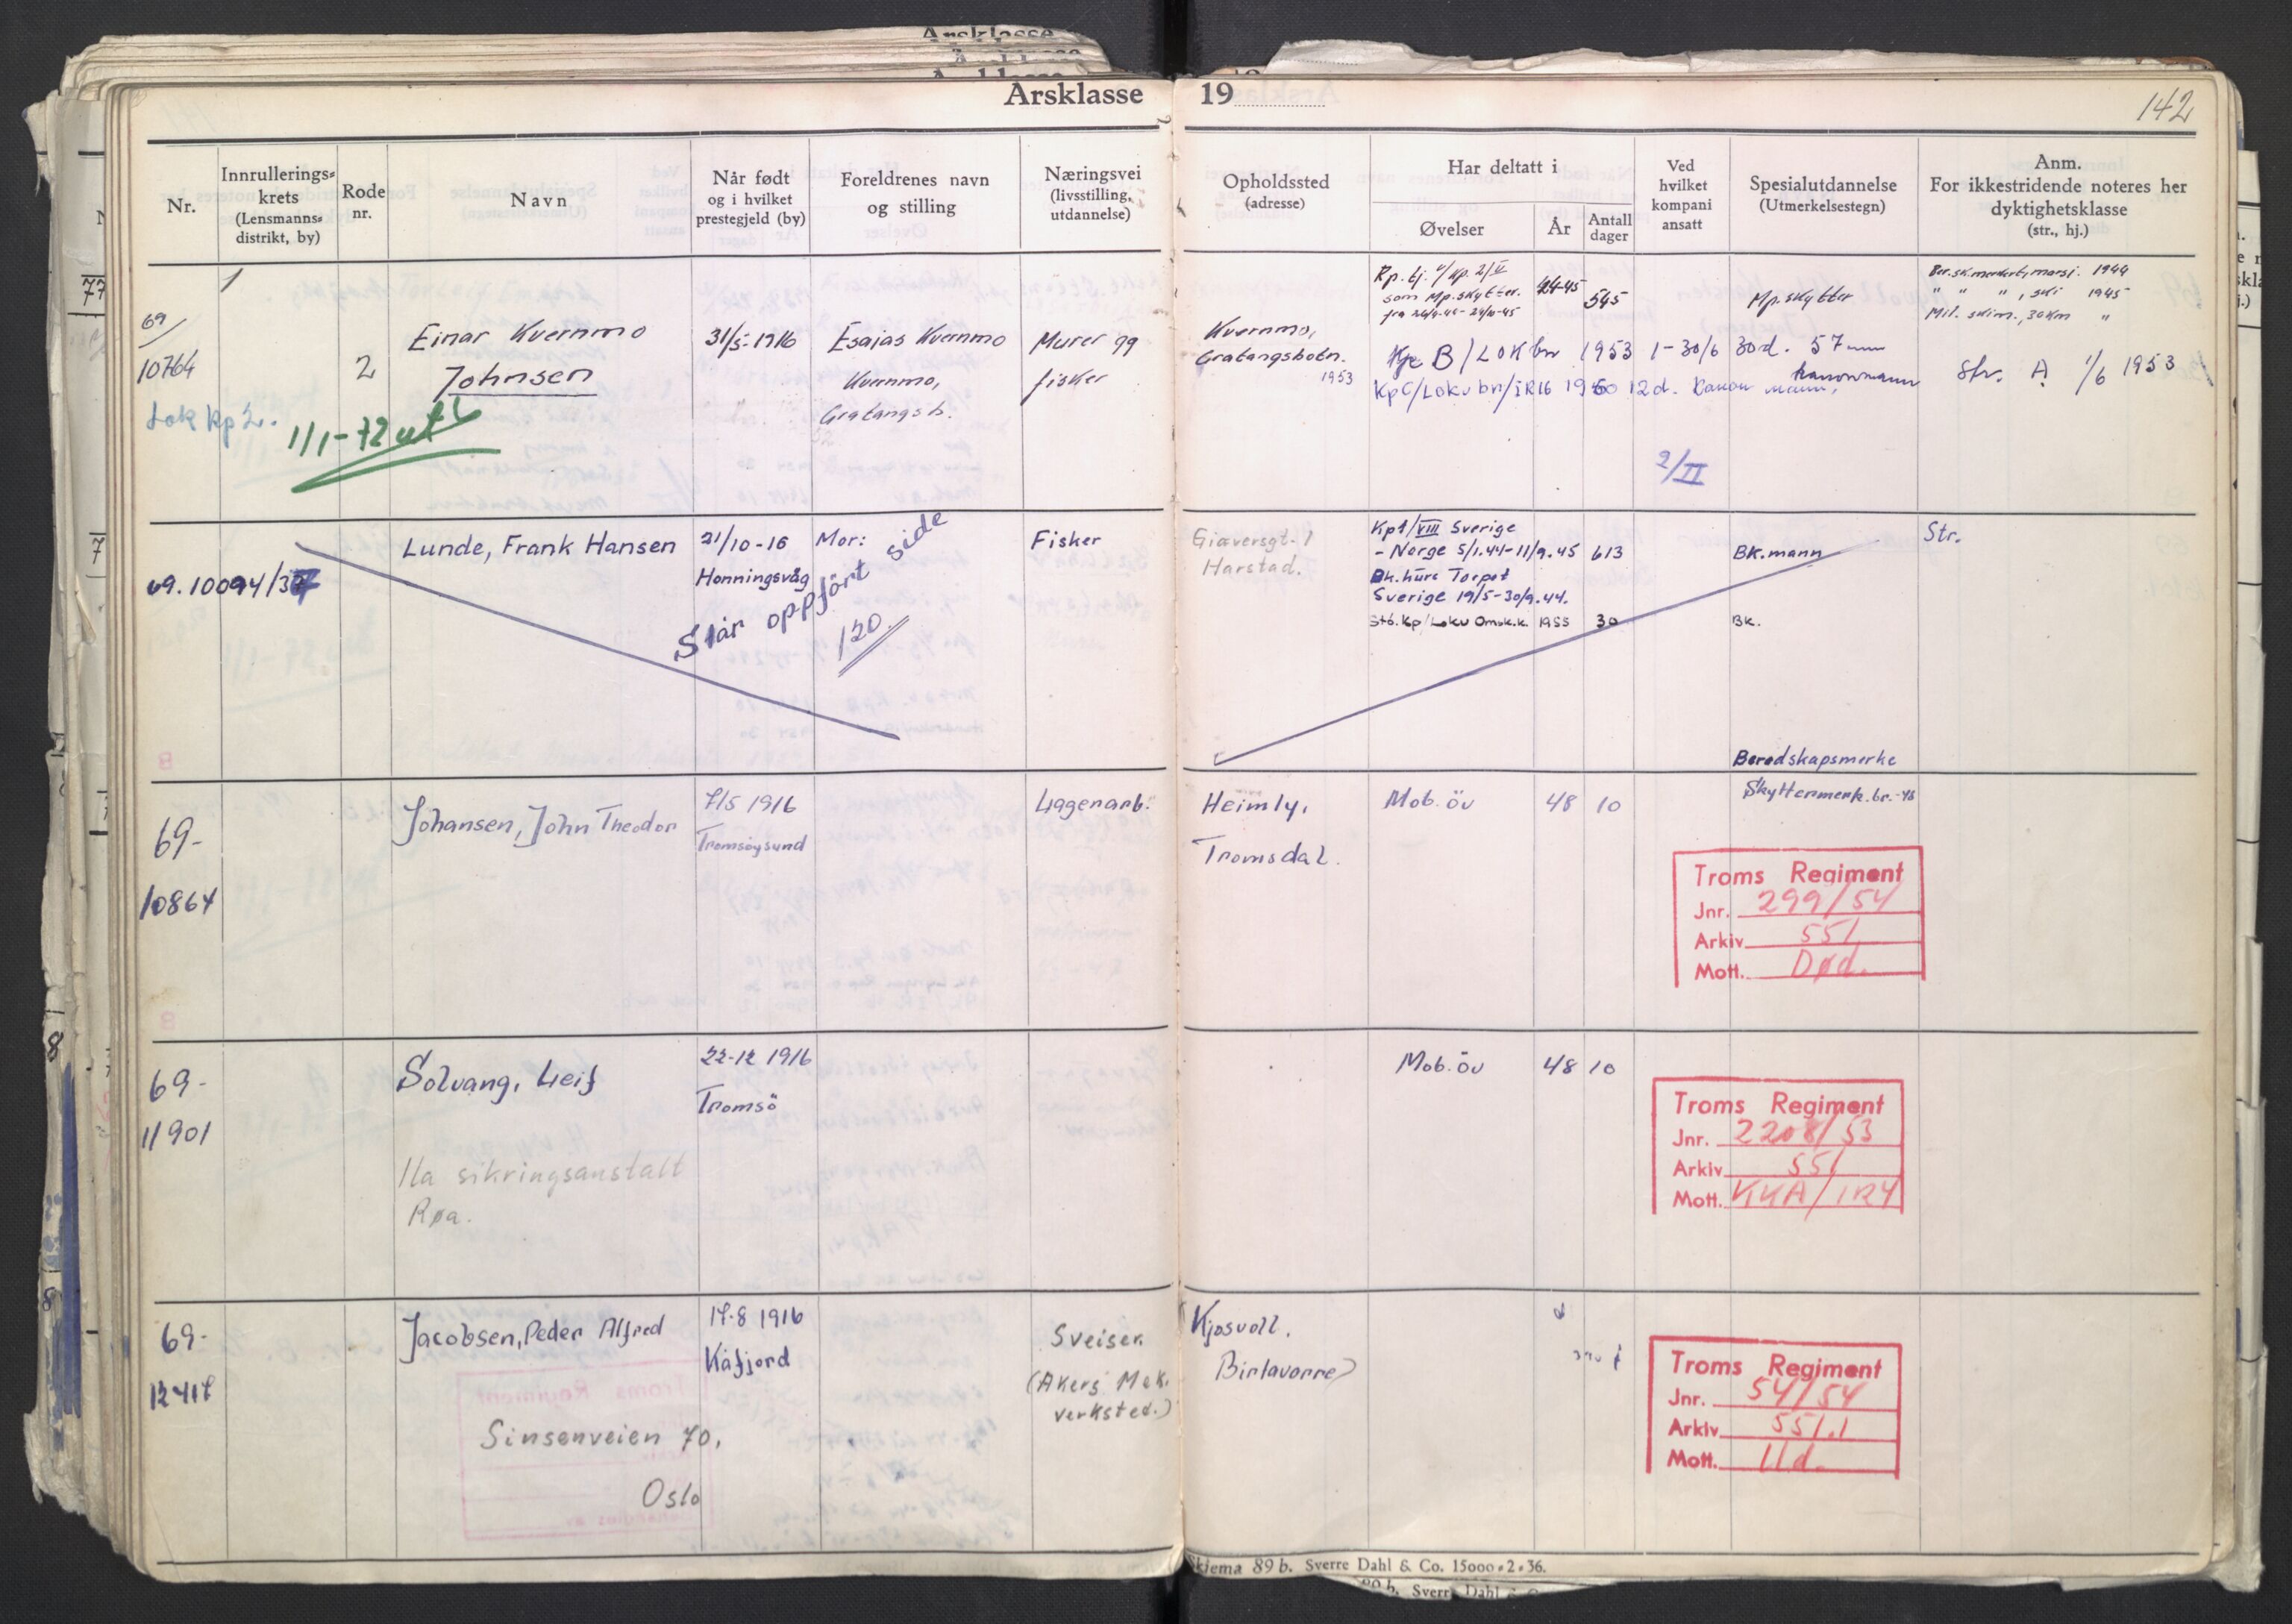 Årsklasse 19
142
Nr.
Innrullerings-
krets
(Lensmanns-
distrikt, by)
Rode
nr.
Navn
Når født
og i hvilket
prestegjeld (by)
Foreldrenes navn
og stilling
Næringsvei
(livsstilling,
utdannelse)
Opholdssted
(adresse)
Har deltatt i
Øvelser
År
Antall
dager
Ved
hvilket
kompani
ansatt
Spesialutdannelse
(Utmerkelsestegn)
Anm.
For ikkestridende noteres her
dyktighetsklasse
(str., hj.)
69/
10764
Lok kp 2.
1/1-72 ut
2
Einar Kvernmo
Johnsen
31/5-1916
Esaias Kvernmo
Kvernmo,
Gratangsb.
Murer og
fisker
Kvernmo,
Gratangsbotn.
1953
Rp. tj. v/kp. 2/II
som Mp.skytter.
44-45
545
Mp. skytter
Ber.sk.merket, marsj. 1944
" " " , ski 1945
Mil. skim., 30km "
Kp B/LOK bn 1953 1-30/6 30d. 57mm
kanonmann
Str. A 1/6 1953
Kp C/Lokv bn/IR16 1960 12d. Kanon mann.
2/II
69.10094/37
Lunde, Frank Hansen
21/10-16
Honningsvåg
Mor:
Står oppført side
120.
Fisker
Giæversgt. 1
Harstad.
Kp1/VIII Sverige
- Norge 5/1.44-11/9.45
613
Bk.kurs Torpet
Sverige 19/5-30/9.44.
St6.Kp/Lokv Omsk.k. 1955 30
BK.mann
BK.
Str.
Beredskapsmerke
69-
10864
Johansen, John Theodor
7/5 1916
Tromsøysund
Lagerarb.
Heimly,
Tromsdal.
Mob. öv 48 10
Skyttermerk. br. -48
Troms Regiment
Jnr. 299/54
Arkiv 551
Mott. Død.
69-
11901
Solvang, Leif
22-12 1916
Tromsö
Ila sikringsanstalt
Røa.
Mob. öv 48 10
Troms Regiment
Jnr. 2208/53
Arkiv 551
Mott. KKA/IR4
69-
12417
Jacobsen, Peder Alfred
17-8 1916
Kåfjord
Sinsenveien 70,
Oslo
Sveiser
(Akers Mek.
verksted.)
Kjosvoll.
Birtavarre
Troms Regiment
Jnr. 54/54
Arkiv 551.1
Mott. Ud.
Skjema 89 b. Sverre Dahl & Co. 15000-2-36.